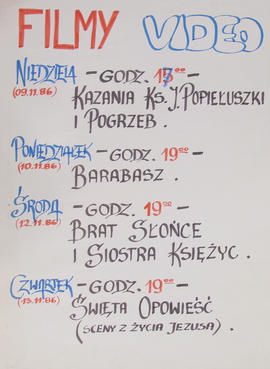 FILMY VIDEO
NIEDZIELA – GODZ. 17⁰⁰ –
(09.11.86) KAZANIA KS. J. POPIEŁUSZKI
I POGRZEB.
PONIEDZIAŁEK – GODZ. 19⁰⁰ –
(10.11.86) BARABASZ.
ŚRODA – GODZ. 19⁰⁰ –
(12.11.86) BRAT SŁOŃCE
I SIOSTRA KSIĘŻYC.
CZWARTEK – GODZ. 19⁰⁰ –
(13.11.86) ŚWIĘTA OPOWIEŚĆ
(SCENY Z ŻYCIA JEZUSA).